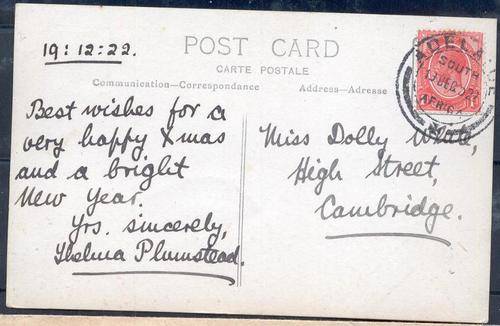 19:12:22.
POST CARD
CARTE POSTALE
Communication—Correspondence
Address—Adresse
Best wishes for a
very happy Xmas
and a bright
New Year.
Yrs. sincerely,
Thelma Plumstead.
Miss Dolly
High Street,
Cambridge.
SOUTH